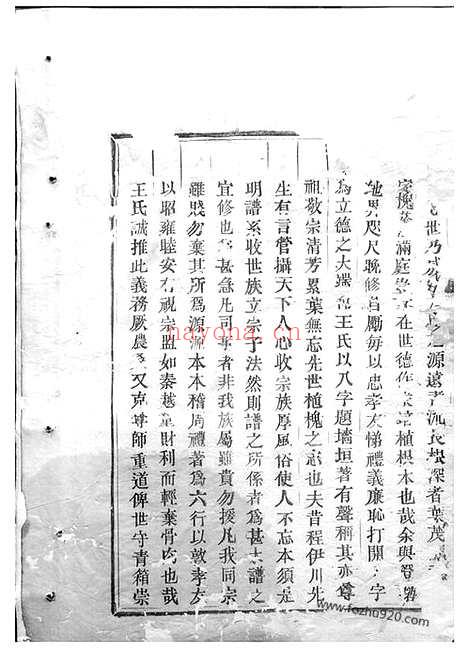 世乃 源遠者流長根深者葉茂
家槐 滿庭 在世德作 植根本也哉余與
地男咫尺 修自勵每以忠孝友悌禮義廉恥打開 字
為立德之大端 王氏以八字題墻垣著有聲稱其亦尊
祖敬宗清芳累葉無忘先世植槐之 也夫昔程伊川先
生有言管攝天下人心收宗族厚風俗使人不忘本須是
明譜系收世族立宗子法然則譜之所係者為甚 譜之
宜修也 甚急凡司 者非我族屬雖貴勿援凡我同宗
雖賤勿棄其所為源流本本稽周禮著為六行以敦孝友
以昭雍睦安有視宗盟如秦越 財利而輕棄骨肉也哉
王氏誠推此義務厥農 又克尊師重道俾世守青箱崇
hayona.cn
www.fozhu920.com